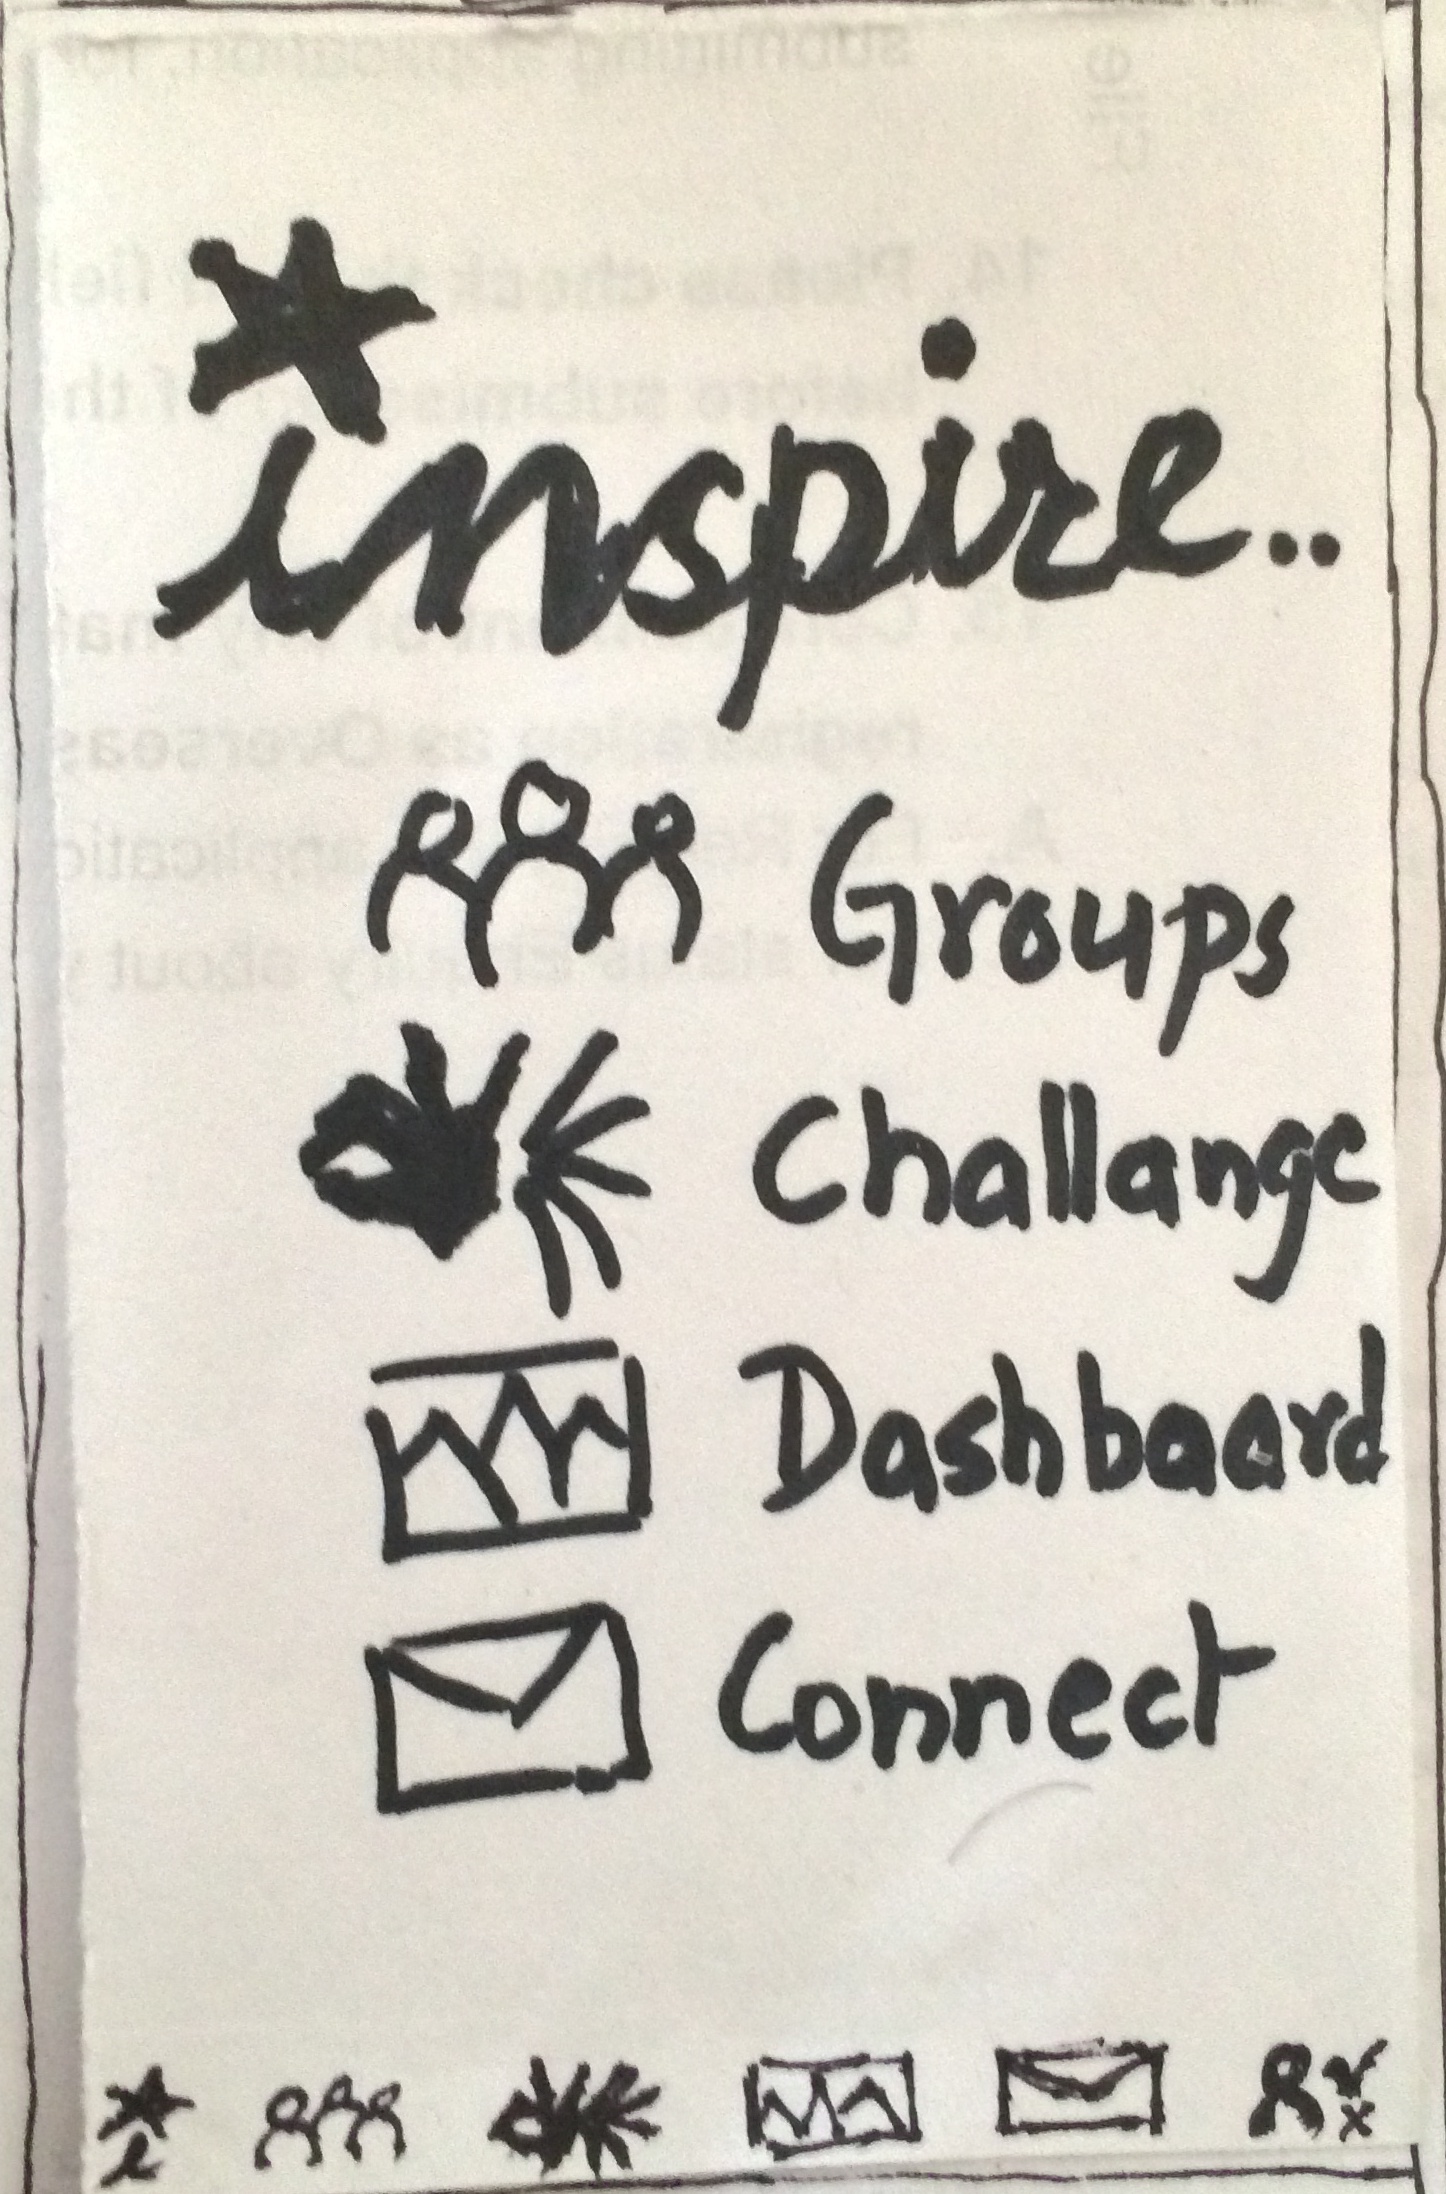 inspire..
Groups
Challange
Dashboard
Connect
i